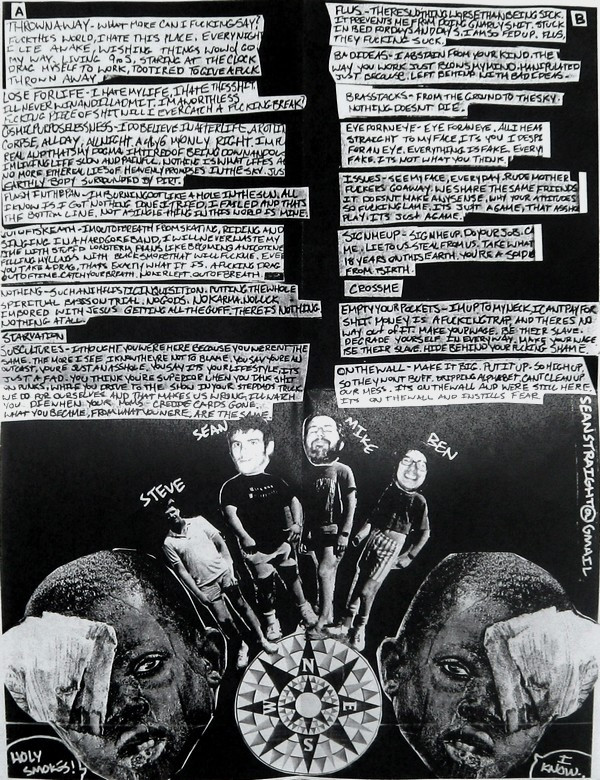 A
THROWN AWAY - WHAT MORE CAN I FUCKING SAY?
FUCK THIS WORLD, I HATE THIS PLACE. EVERY NIGHT
I LIE AWAKE, WISHING THINGS WOULD GO
MY WAY. LIVING 9 TO 5, STARING AT THE CLOCK
DRAG MYSELF TO WORK, TOO TIRED TO GIVE A FUCK
THROWN AWAY
LOSE FOR LIFE - I HATE MY LIFE, I HATE THIS SHIT
I'LL NEVER WIN AND I'LL ADMIT. I'M A WORTHLESS
FUCKING PIECE OF SHIT WILL I EVER CATCH A FUCKING BREAK!
COSMIC PURPOSELESSNESS - I DO BELIEVE IN AFTERLIFE, A ROTTING
CORPSE, ALL DAY, ALL NIGHT
REAL AND THAT'S MY DOGMA
WASTING LIFE SUCH AND PAINFUL. NOTHING IS WHAT LIFE'S
NO MORE ETHEREAL LIES OF HEAVENLY PROMISES IN THE SKY. JUST
EARTHLY BODY SURROUNDED BY DIRT.
I'M BURNING OUT LIKE A HOLE IN THE SUN, ALL
I KNOW IS I GOT NOTHING DONE. I TRIED, I FAILED AND THAT'S
THE BOTTOM LINE, NOT A SINGLE THING IN THIS WORLD IS MINE.
OUT OF BREATH - I'M OUT OF BREATH FROM SKATING, RIDING AND
SINGING IN A HARDCORE BAND, I WILL NEVER WASTE MY
TIME WITH STUPID
FILLING MY LUNGS WITH BLACK SMOKE THAT WILL FUCK ME. EVERY
YOU TAKE A DRAG, THAT'S EXACTLY WHAT IT IS. A FUCKING DRAG
OUT OF TIME. CATCH YOUR BREATH. NONE LEFT. OUT OF BREATH
NOTHING - SUCH A NIHILISTIC INQUISITION. PUTTING THE WHOLE
SPIRITUAL BASIS ON TRIAL. NO GODS. NO KARMA. NO LUCK.
I'M BORED WITH JESUS GETTING ALL THE GUFF. THERE IS NOTHING
NOTHING AT ALL.
STARVATION
SUBCULTURE - I THOUGHT YOU WERE HERE BECAUSE YOU WEREN'T THE
SAME. THE MORE I SEE I KNOW THEY'RE NOT TO BLAME. YOU SAY YOU'RE AN
OUTCAST, YOU'RE JUST AN ASSHOLE. YOU SAY IT'S YOUR LIFESTYLE, IT'S
JUST A FAD. YOU THINK YOU'RE SUPERIOR WHEN YOU TALK SHIT
ON PUNKS, WHILE YOU DRIVE TO THE SHOW IN YOUR STEPDAD'S TRUCK
WE DO FOR OURSELVES AND THAT MAKES US WRONG, I'LL WATCH
YOU DIE WHEN YOUR MOM'S CREDIT CARDS GONE.
WHAT YOU BECAME, FROM WHAT YOU WERE, ARE THE SAME.
B
FLUS - THERES NOTHING WORSE THAN BEING SICK.
IT PREVENTS ME FROM DOING GNARLY SHIT. STUCK
IN BED FOR DAYS AND DAYS. I AM SO FED UP. FLUS,
THEY FUCKING SUCK.
BAD IDEAS - I ABSTAIN FROM YOUR KIND. THE
WAY YOU WORK JUST BLOWS MY MIND. MANIPULATED
JUST BECAUSE. LEFT BEHIND WITH BAD IDEAS.
BRASSTACKS - FROM THE GROUND TO THE SKY.
NOTHING DOESNT DIE.
EYE FOR AN EYE - EYE FOR AN EYE, ALL I HEAR
STRAIGHT TO MY FACE, IT'S YOU I DESPISE
FOR AN EYE. EVERYTHING IS FAKE. EVERY
FAKE. IT'S NOT WHAT YOU THINK.
ISSUES - SEE MY FACE, EVERYDAY. RUDE MOTHER
FUCKERS GO AWAY. WE SHARE THE SAME FRIENDS
IT DOESNT MAKE ANY SENSE, WHY YOUR ATTITUDES
SO FUCKING LAME. ITS JUST A GAME, THAT ASSHOLES
PLAY. IT'S JUST A GAME.
SIGN ME UP - SIGN ME UP. DO YOUR JOB. CA
ME, LIE TO US STEAL FROM US. TAKE WHAT
18 YEARS ON THIS EARTH. YOU'RE A
FROM BIRTH.
CROSS ME
EMPTY YOUR POCKETS - I'M UP TO MY NECK, I CANT PAY FOR
SHIT MONEY IS A FUCKING TRAP AND THERE'S NO
WAY OUT OF IT. MAKE YOUR WAGE. BE THEIR SLAVE.
DEGRADE YOURSELF IN EVERY WAY. MAKE YOUR WAGE
BE THEIR SLAVE. HIDE BEHIND YOUR FUCKING SHAME.
ON THE WALL - MAKE IT BIG. PUT IT UP - SO HIGH UP,
SO THEY WON'T BUFF. DRIPPING ALPHABET CAN'T CLEAN UP
OUR MESS. ITS ON THE WALL AND WE'RE STILL HERE.
ITS ON THE WALL AND INSTILLS FEAR.
SEANSTRAIGHT@GMAIL
STEVE
SEAN
MIKE
BEN
N
W
E
S
HOLY
SMOKES!
I
KNOW.